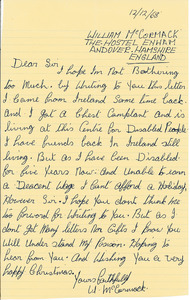 12/12/68
WILLIAM McCORMACK
THE HOSTEL ENHAM
ANDOVER. HAMSHIRE
ENGLAND
Dear Sir,
I hope I'm Not Bothering
too Much. by Writing to You this letter
I came from Ireland Some time back.
and I got a Chest Complant and is
living at this Centre For Disabled People
I have friends back In Ireland still
living. But as I have been Disabled
for five Years Now. And Unable to earn
a Descent wage I Cant afford a Holiday.
However Sir. I hope You dont think me
too forward for Writing to You. But as I
dont get Many letters Nor Gifts I know You
Will Under stand My Reason. Hoping to
hear from You. And Wishing You a very
happy Christmas.
Yours faithfully
W McCormack